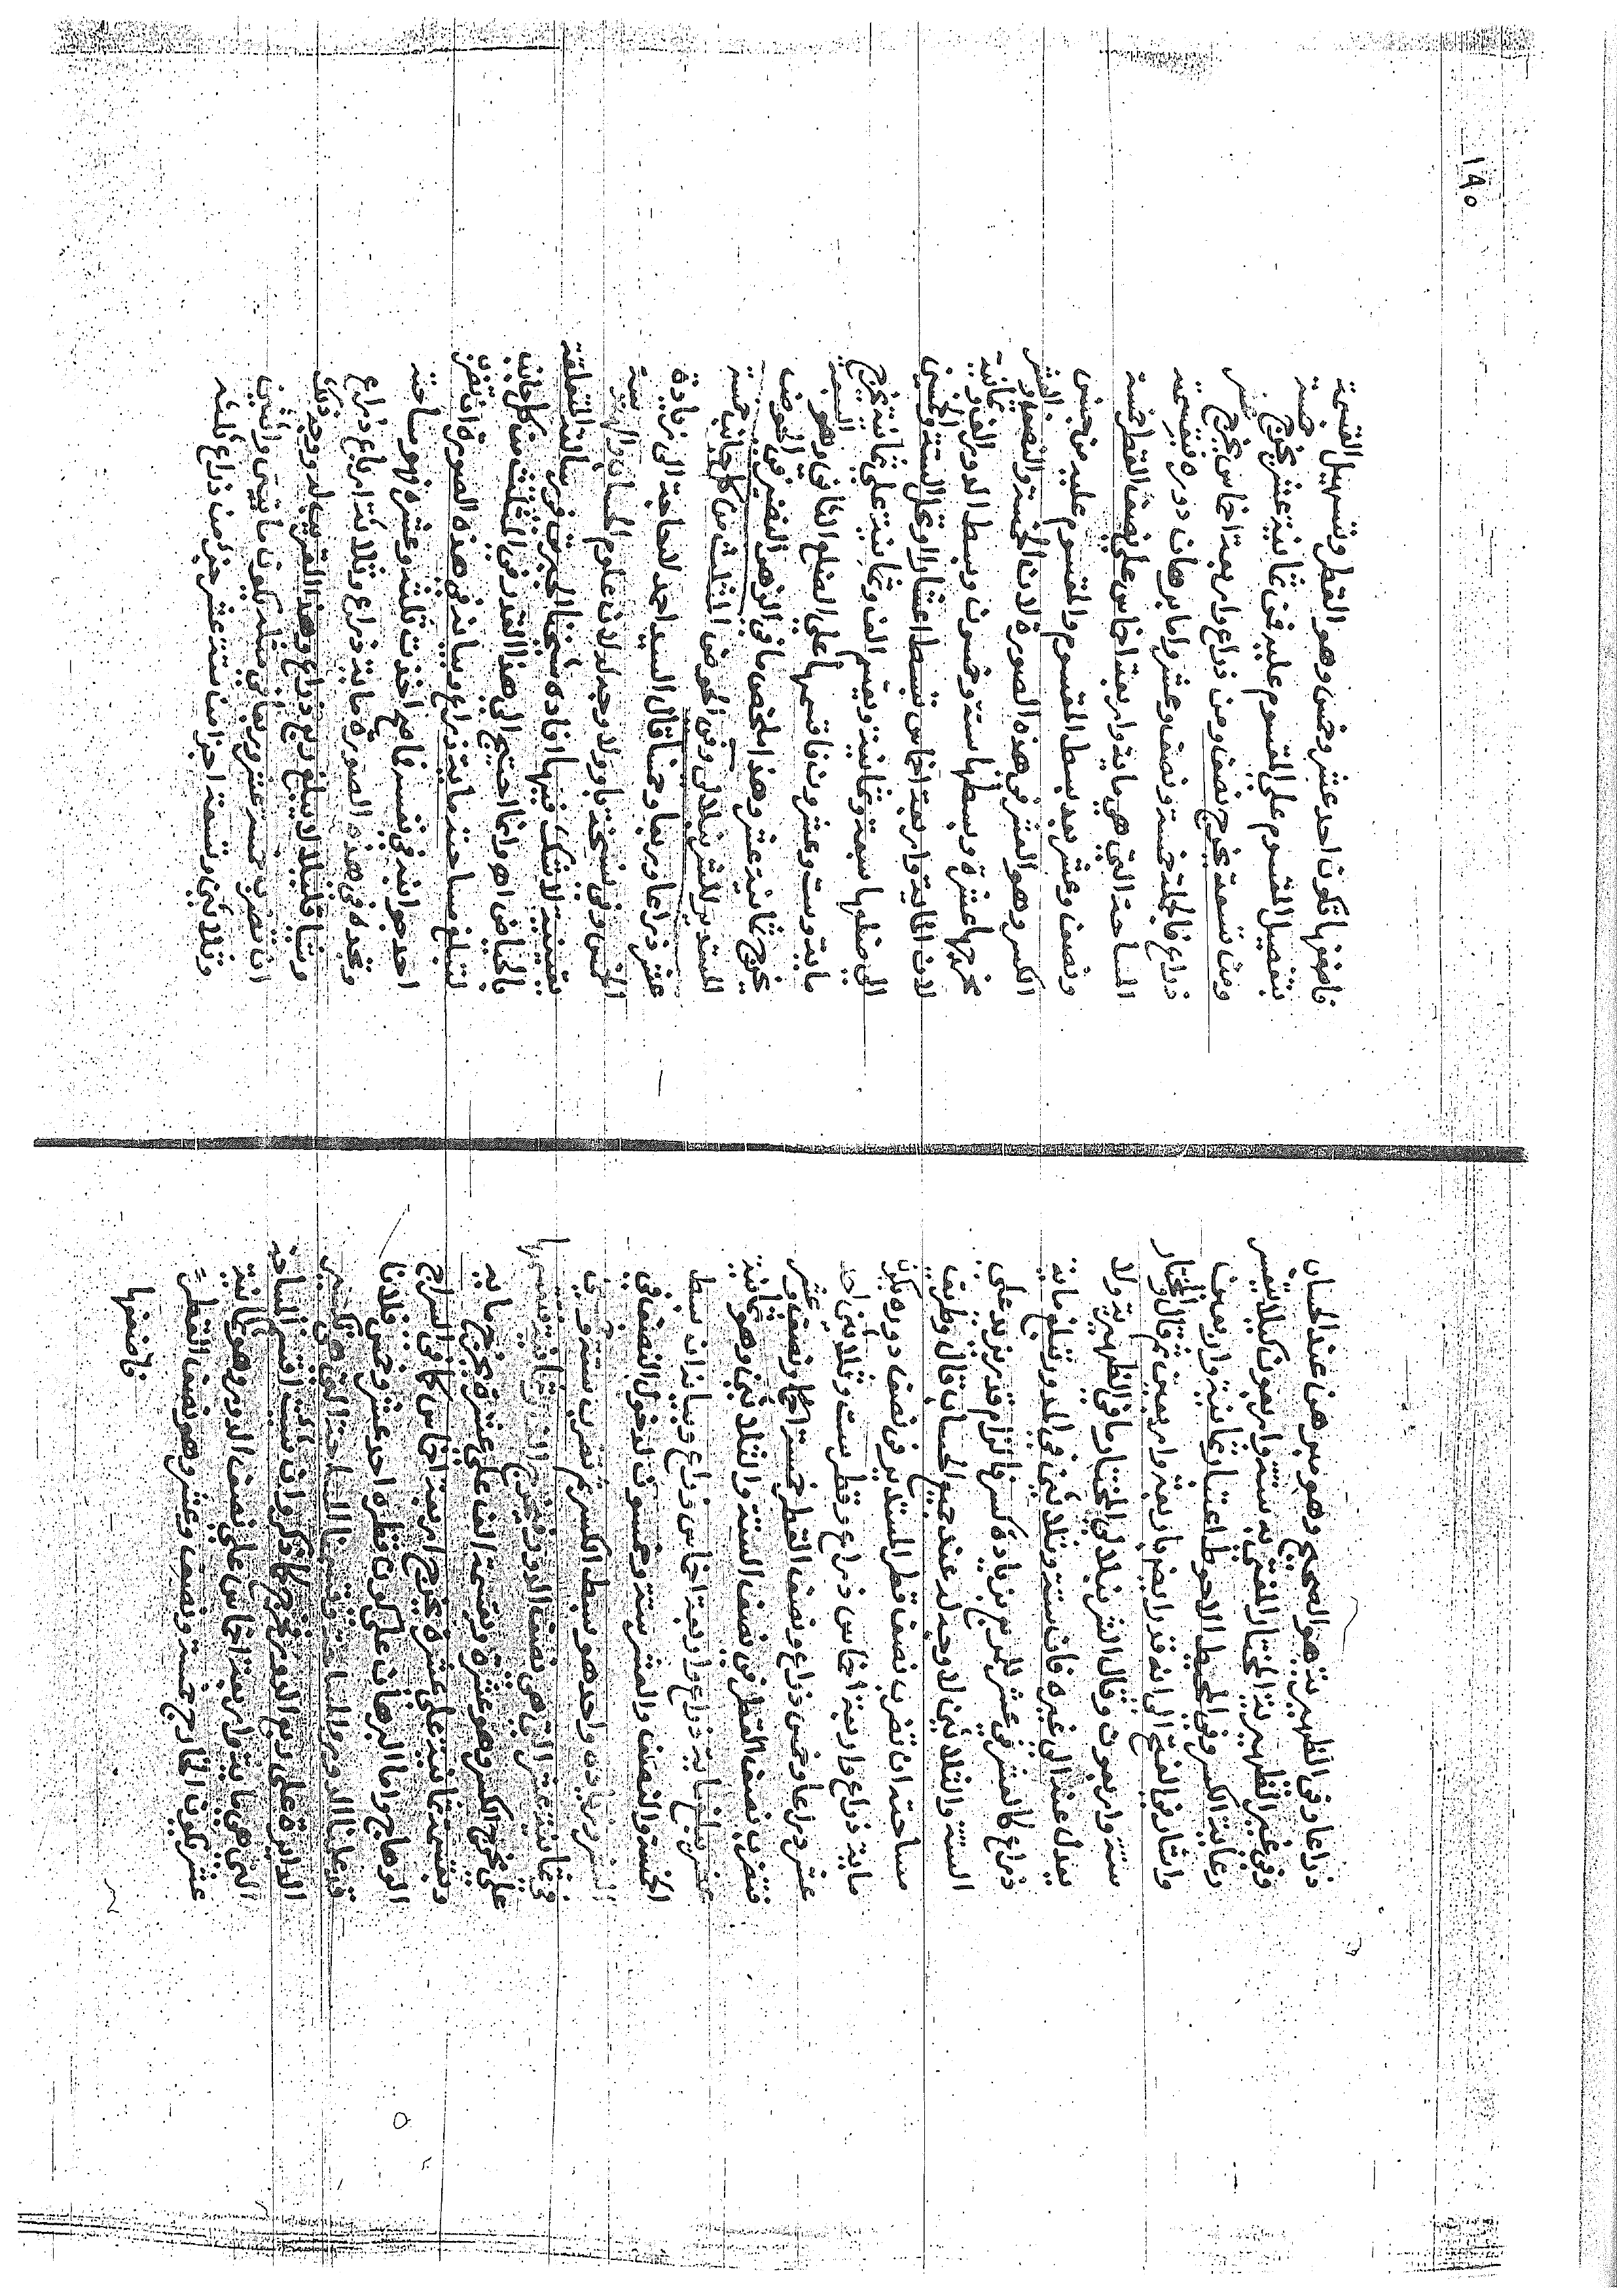 ذراعا وفي الظهيرية هو الصحيح وهو مبرهن عند الحساب
وفي غير الظهيرية المختار المفتى به ستة واربعون كيلا يعسر
رعاية الكسر وفي المحيط الاحوط اعتبار ثمانية واربعين
واشار في الفتح الى انه باربعة واربعين ثم قال والمختار
ستة واربعون وقال الشرنبلالي المختار ما في الظهيرية ولا
يعدل عنه الى غيره فان ستة وثلاثين في المدور تبلغ ماية
ذراع كالعشر في عشر المربع بزيادة كسر فالزام قدر يزيد على
الستة والثلاثين لا وجه له عند جميع الحساب قال وطريق
مساحته ان تضرب نصف قطر المستدير في نصف دوره يكون
ماية ذراع واربعة اخماس ذراع وقطر ست وثلاثين احد
عشر ذراعا وخمس ذراع ونصف القطر خمسة ونصف وعشر
فتضرب نصف القطر في نصف الستة والثلاثين وهو ثمانية
عشر يبلغ ماية ذراع واربعة اخماس ذراع وبيانه ان بسط
الخمسة والنصف والعشر ستة وخمسون لدخول النصف في
العشر وزيادة واحد هو بسط الكسر ثم تضرب ستة وخمسين
في ثمانية عشر التي هي نصف الدور يخرج الف وثمانية تقسمها
على مخرج الكسر وهو عشرة وقسمة الف على عشرة يخرج ماية
وقسمة ثمانية على عشرة يخرج اربعة اخماس كما في السراج
الوهاج واما البرهان على كون قطره احد عشر وخمس فلانا
قد علمنا الدور والمساحة وقسمنا المساحة التي هي تكسير
الدايرة على ربع الدور فخرج كما ذكر وان شئت اقسم المساحة
التي هي ماية واربعة اخماس على نصف الدور وهو ثمانية
عشر يكون الخارج خمسة ونصف وعشر وهو نصف القطر
فاضعفها
١٩٥
فاضعفها تكون احد عشر وخمس وهو القطر وتسهيل القسمة
بتفصيل المقسوم على المقسوم عليه ففي ثمانية عشر يخرج خمسة
ومن تسعة يخرج نصف ومن ذراع واربعة اخماس يخرج عشر
ذراع فالجملة خمسة ونصف وعشر واما برهان دوره فبقسمة
المساحة التي هي ماية واربعة اخماس على نصف القطر خمسة
ونصف وعشر بعد بسط المقسوم والمقسوم عليه من جنس
الكسر وهو العشر في هذه الصورة لان الخمسة والنصف والعشر
مخرجها عشرة وبسطها ستة وخمسون وبسط الدور الف وثمانية
لان الماية واربعة اخماس تبسط اعشارا وتحل الستة والخمسين
الى ضلعها سبعة وثمانية وتقسم الف وثمانية على ثمانية يخرج
ماية وست وعشرون فاقسمها على الضلع الثاني وهو السبعة
يخرج ثمانية عشر وهذا ملخص ما في الزهر النضير في الحوض
المستدير للشرنبلالي ومن الحوض المثلث من كل جانب خمسة
عشر ذراعا وربعا وخمسا قال السيد احمد لا حاجة الى زيادة
الخمس وفي نسخة او ولا وجه له لان علوم الحساب والهيئة
يقينية لا شك فيها افاده شيخنا الجبرتي في رسالته المتعلقة
بالحياض اهـ وانما احتيج الى هذا القدر في المثلث من كل جانب
لتبلغ مساحته ماية ذراع وبيانه في هذه الصورة ان تضرب
احد جوانبه في نفسه فما صح اخذت ثلثه وعشره فهو مساحته
وتجده في هذه الصورة ماية ذراع وثلاثة ارباع ذراع
وشيا قليلا لا يبلغ ربع ذراع وهذا التقريب له ووجه ذلك
ان تضرب خمسة عشر وربعا في مثله يكون مايتين واثنين
وثلاثين وتسعة اجزا من ستة عشر جزا من ذراع ثلثه